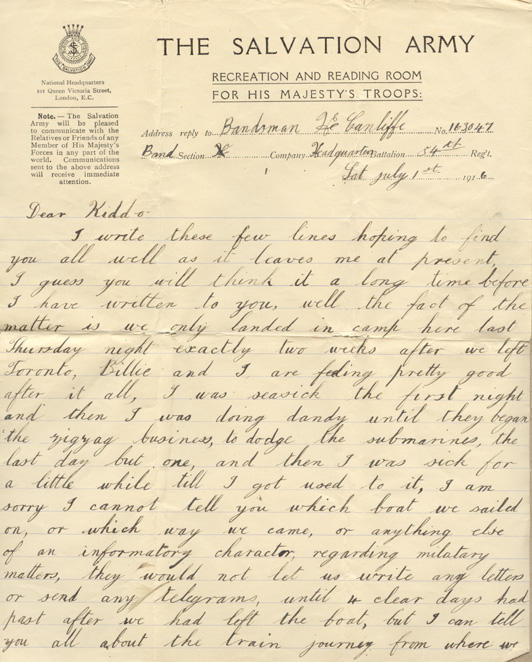 THE SALVATION ARMY
RECREATION AND READING ROOM
FOR HIS MAJESTY'S TROOPS:
National Headquarters
101 Queen Victoria Street,
London, E.C.
Note. — The Salvation
Army will be pleased
to communicate with the
Relatives or Friends of any
Member of His Majesty's
Forces in any part of the
world. Communications
sent to the above address
will receive immediate
attention.
Address reply to Bandsman Cunliffe No. 163047
Band Section Company Headquarters Battalion 54th Regt.
Sat July 1st 1916
Dear Kiddo
I write these few lines hoping to find
you all well as it leaves me at present,
I guess you will think it a long time before
I have written to you, well the fact of the
matter is we only landed in camp here last
Thursday night exactly two weeks after we left
Toronto, Billie and I are feeling pretty good
after it all, I was seasick the first night
and then I was doing dandy until they began
the zigzag business, to dodge the submarines, the
last day but one, and then I was sick for
a little while till I got used to it, I am
sorry I cannot tell you which boat we sailed
on, or which way we came, or anything else
of an informatory character, regarding military
matters, they would not let us write any letters
or send any telegrams, until 4 clear days had
past after we had left the boat, but I can tell
you all about the train journey from where we